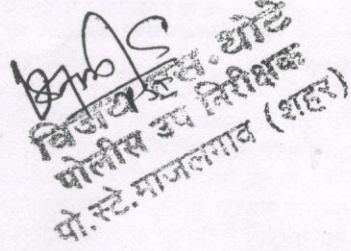 विजय एच. थोटे
पोलीस उप निरीक्षक
पो.स्टे.माजलगाव (शहर)